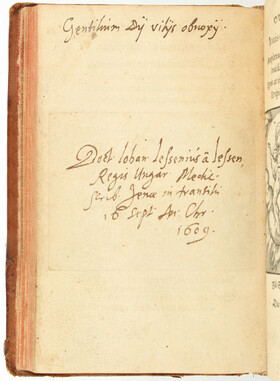 Gentilium Dij vitijs obnoxij.
Doct. Iohan Jessenius à Jessen,
Regis Ungar. Medic.
scrib. Jenae in transitu
16 Sept. Ao. Chr.
1609.